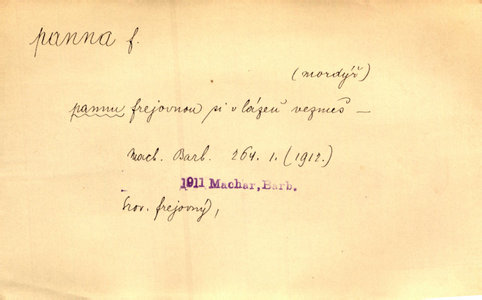 panna f.
(mordýř)
pannu frejovnou si v lázeň vezmeš —
Mach. Barb. 264. 1. (1912.)
1911 Machar, Barb.
Srov. frejovný,